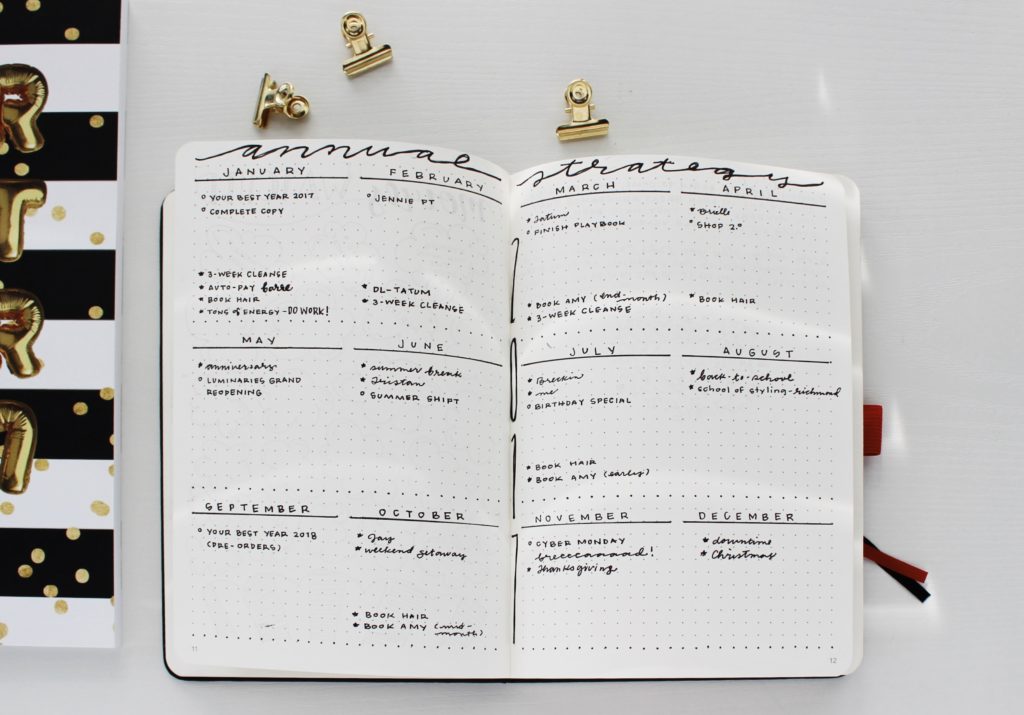 R
T
R
annual strategy
JANUARY
YOUR BEST YEAR 2017
COMPLETE COPY
3-WEEK CLEANSE
AUTO-PAY barre
BOOK HAIR
TONS of ENERGY - DO WORK!
FEBRUARY
JENNIE PT
DL-TATUM
3-WEEK CLEANSE
MARCH
Tatum
FINISH PLAYBOOK
BOOK AMY (end-
month)
3-WEEK CLEANSE
APRIL
Brielle
SHOP 2.0
BOOK HAIR
MAY
anniversary
LUMINARIES GRAND
REOPENING
JUNE
summer break
Tristan
SUMMER SHIFT
2017
JULY
Breckin
me
BIRTHDAY SPECIAL
BOOK HAIR
BOOK AMY (early)
AUGUST
back-to-school
SCHOOL OF STYLING-richmond
SEPTEMBER
YOUR BEST YEAR 2018
(PRE-ORDERS)
OCTOBER
Jay
weekend getaway
BOOK HAIR
BOOK AMY (mid-
month)
NOVEMBER
CYBER MONDAY
breecccaaaaad!
Thanksgiving
DECEMBER
downtime
Christmas
11
12